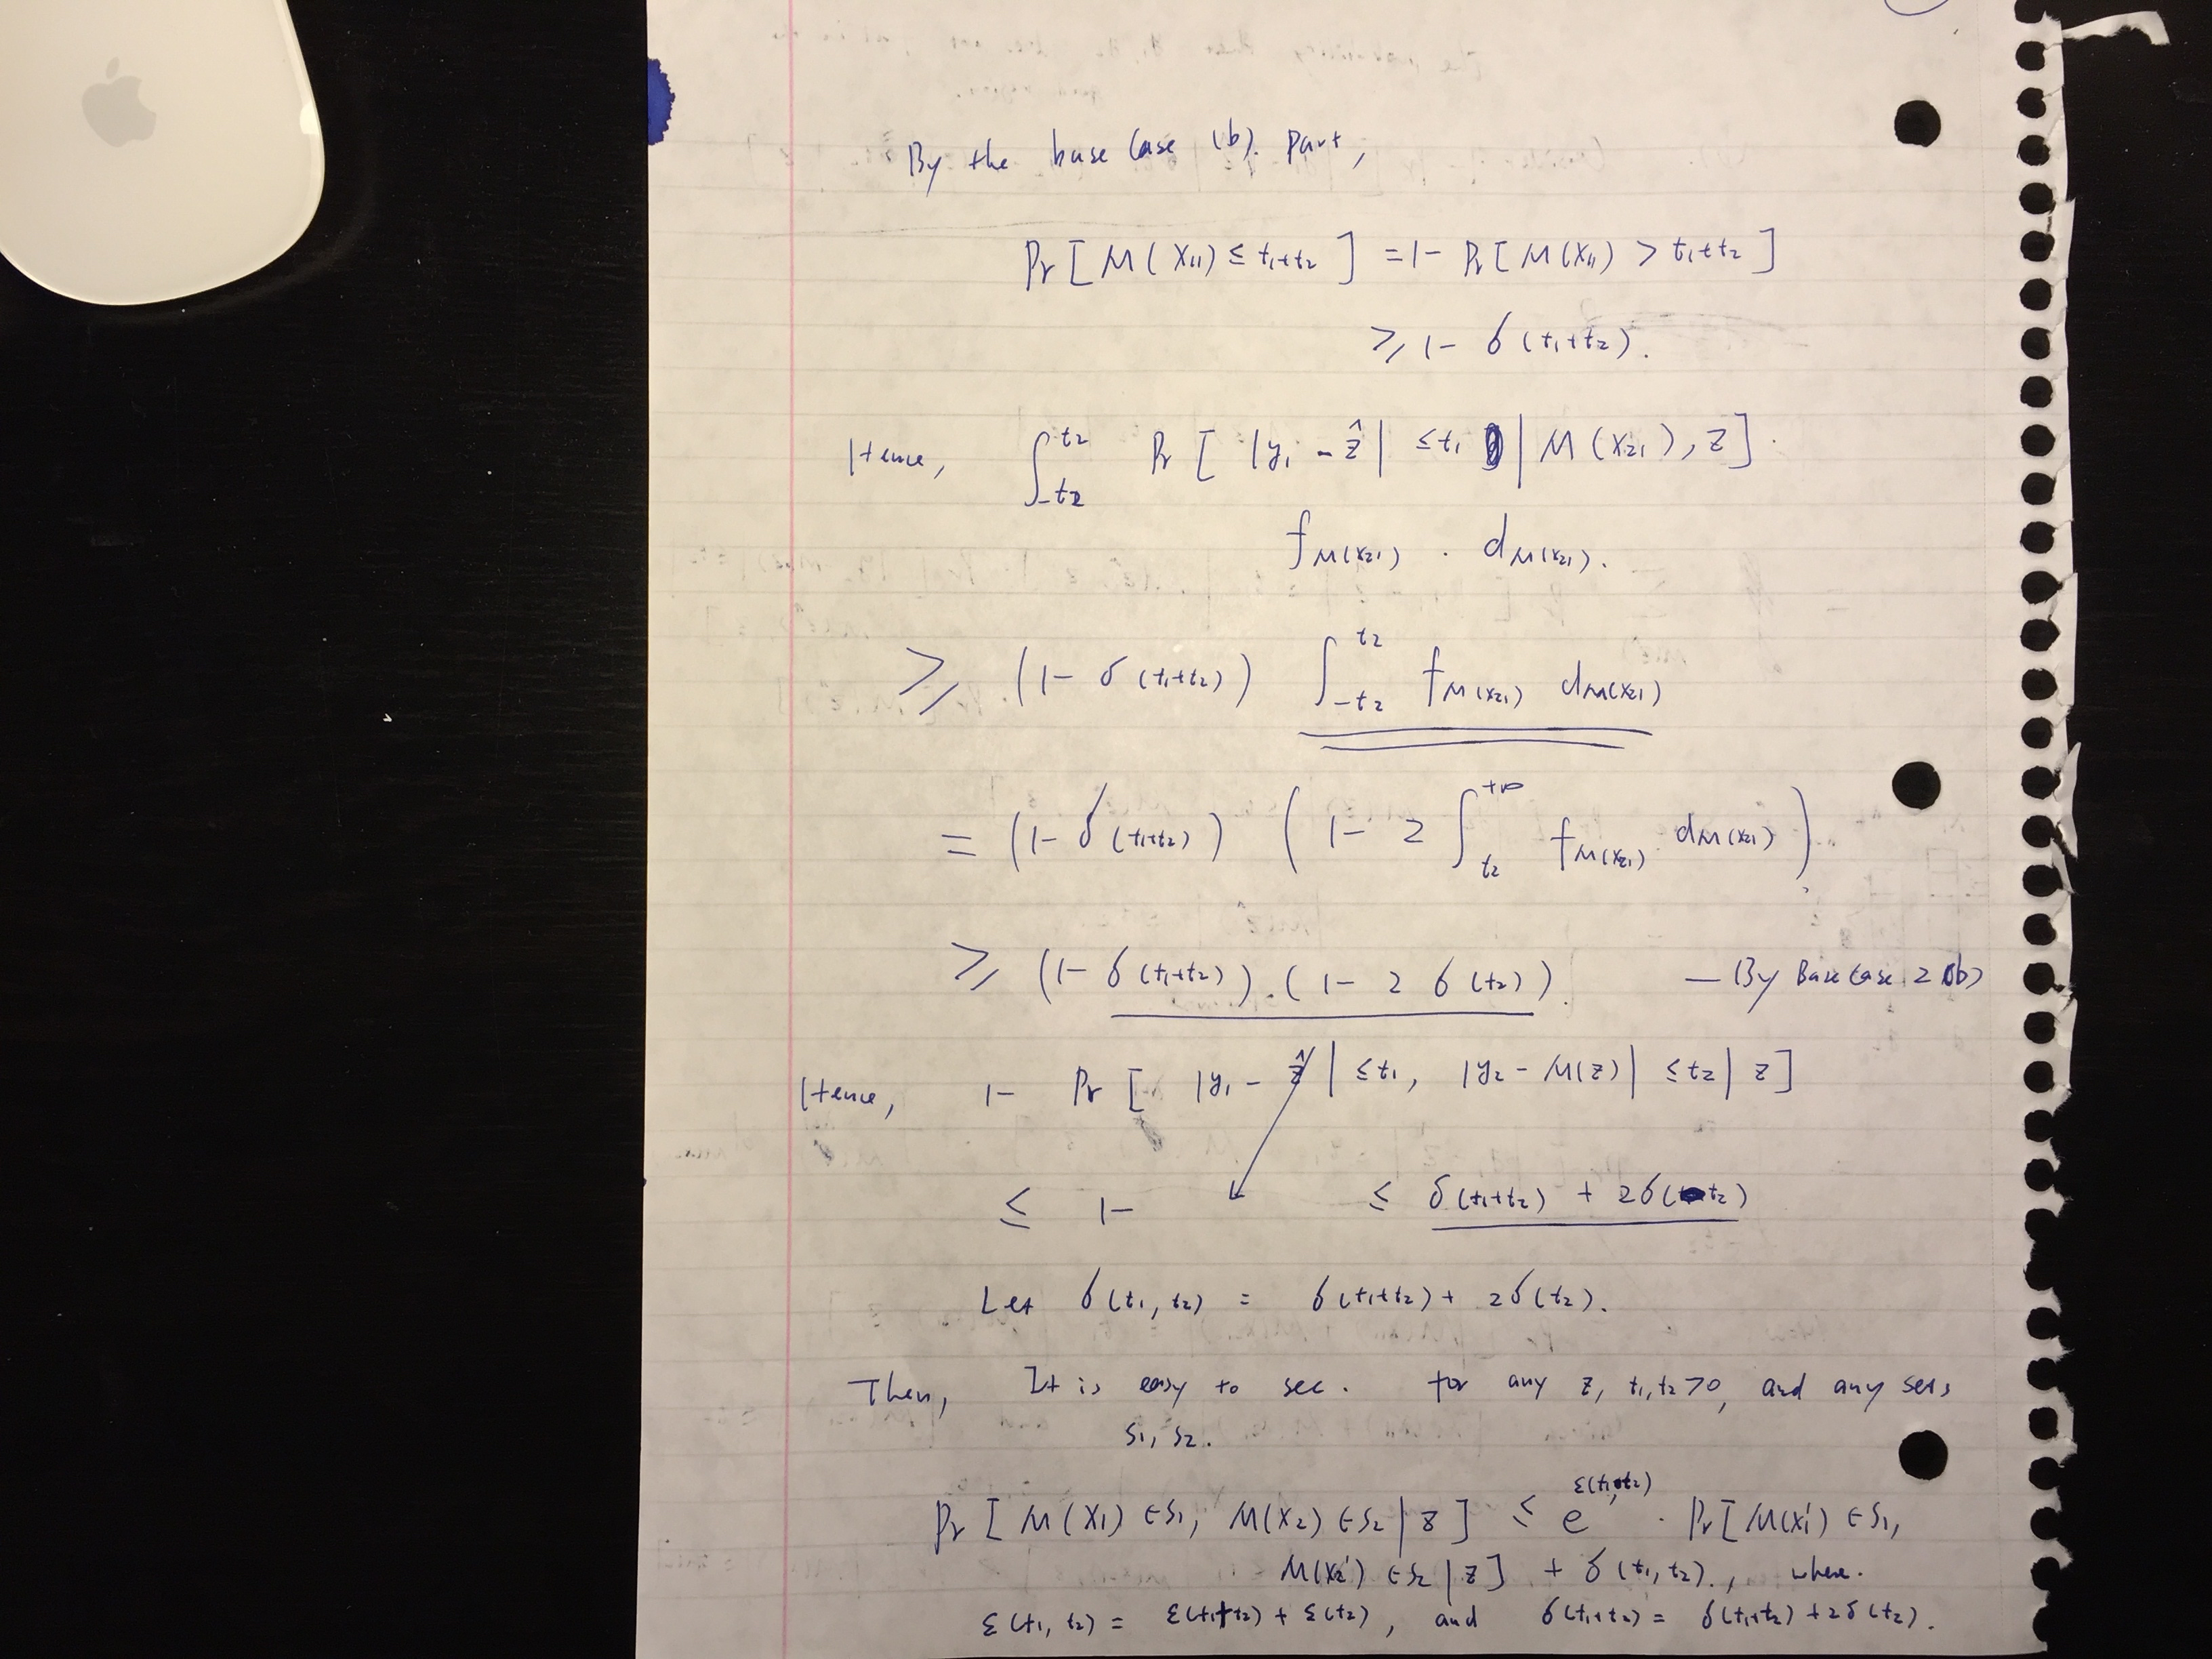 By the base Case (b). part,
Pr [ M ( X₁₁) ≤ t₁+t₂ ] = 1 - Pr [ M(X₁₁) > t₁+t₂ ]
≥ 1 - δ (t₁+t₂).
Hence, ∫_{-t₂}^{t₂} Pr [ |y₁ - ẑ| ≤ t₁ | M (X₂₁), z ] .
f_{M(X₂₁)} . d_{M(X₂₁)}.
≥ (1 - δ (t₁+t₂)) ∫_{-t₂}^{t₂} f_{M(X₂₁)} d_{M(X₂₁)}
= (1 - δ (t₁+t₂)) (1 - 2 ∫_{t₂}^{+∞} f_{M(X₂₁)} . d_{M(X₂₁)})
≥ (1 - δ (t₁+t₂)) . (1 - 2 δ (t₂)). — By Base Case 2 (b)
Hence, 1 - Pr [ |y₁ - ẑ| ≤ t₁, |y₂ - M(z)| ≤ t₂ | z ]
≤ 1 - ≤ δ (t₁+t₂) + 2δ (t₂)
Let δ (t₁, t₂) = δ (t₁+t₂) + 2δ (t₂).
Then, It is easy to see. for any z, t₁, t₂ > 0, and any sets
S₁, S₂.
Pr [ M(X₁) ∈ S₁, M(X₂) ∈ S₂ | z ] ≤ e^{ε(t₁,t₂)} . Pr [ M(X₁') ∈ S₁,
M(X₂') ∈ S₂ | z ] + δ (t₁, t₂)., where.
ε (t₁, t₂) = ε(t₁+t₂) + ε(t₂), and δ (t₁+t₂) = δ (t₁+t₂) + 2δ (t₂).